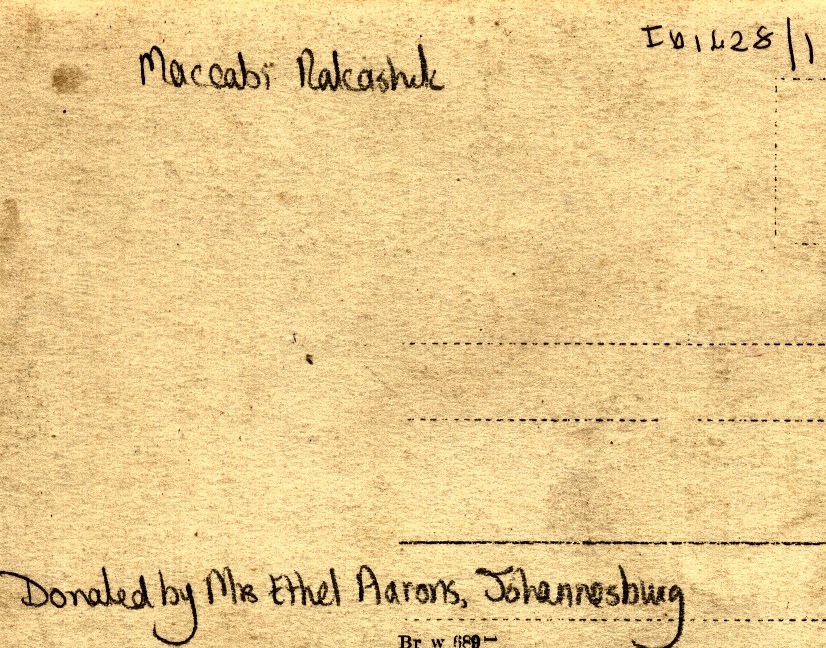 Maccabi Rakashik
ID1428/1
Donated by Mrs Ethel Aarons, Johannesburg
Br w 689